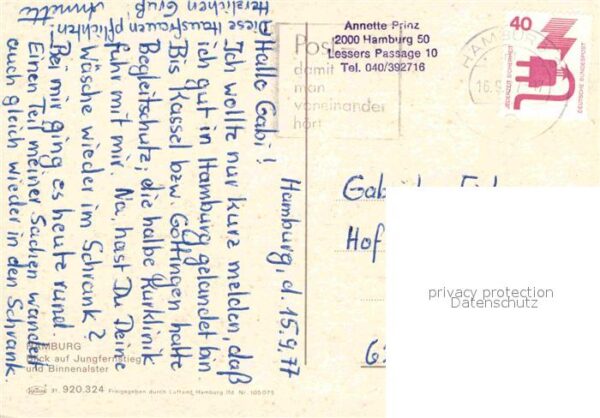 Hamburg, d. 15.9.77
Hallo Gabi!
Ich wollte nur kurz melden, daß
ich gut in Hamburg gelandet bin
Bis Kassel bzw. Göttingen hatte
Begleitschutz; die halbe Kurklinik
fuhr mit mir. Na, hast Du Deine
Wäsche wieder im Schrank?
Bei mir ging es heute rund.
Einen Teil meiner Sachen wandert
auch gleich wieder in den Schrank.
Diese Hausfrauenpflichten..
Herzlichen Gruß
Annette
Annette Prinz
2000 Hamburg 50
Lessers Passage 10
Tel. 040/392716
Post
damit
man
voneinander
hört
HAMBURG
16.9.
40
JEDERZEIT SICHERHEIT
DEUTSCHE BUNDESPOST
Hof
privacy protection
Datenschutz
HAMBURG
Blick auf Jungfernstieg
und Binnenalster
31. 920.324 Freigegeben durch Luftamt Hamburg lfd. Nr. 105075